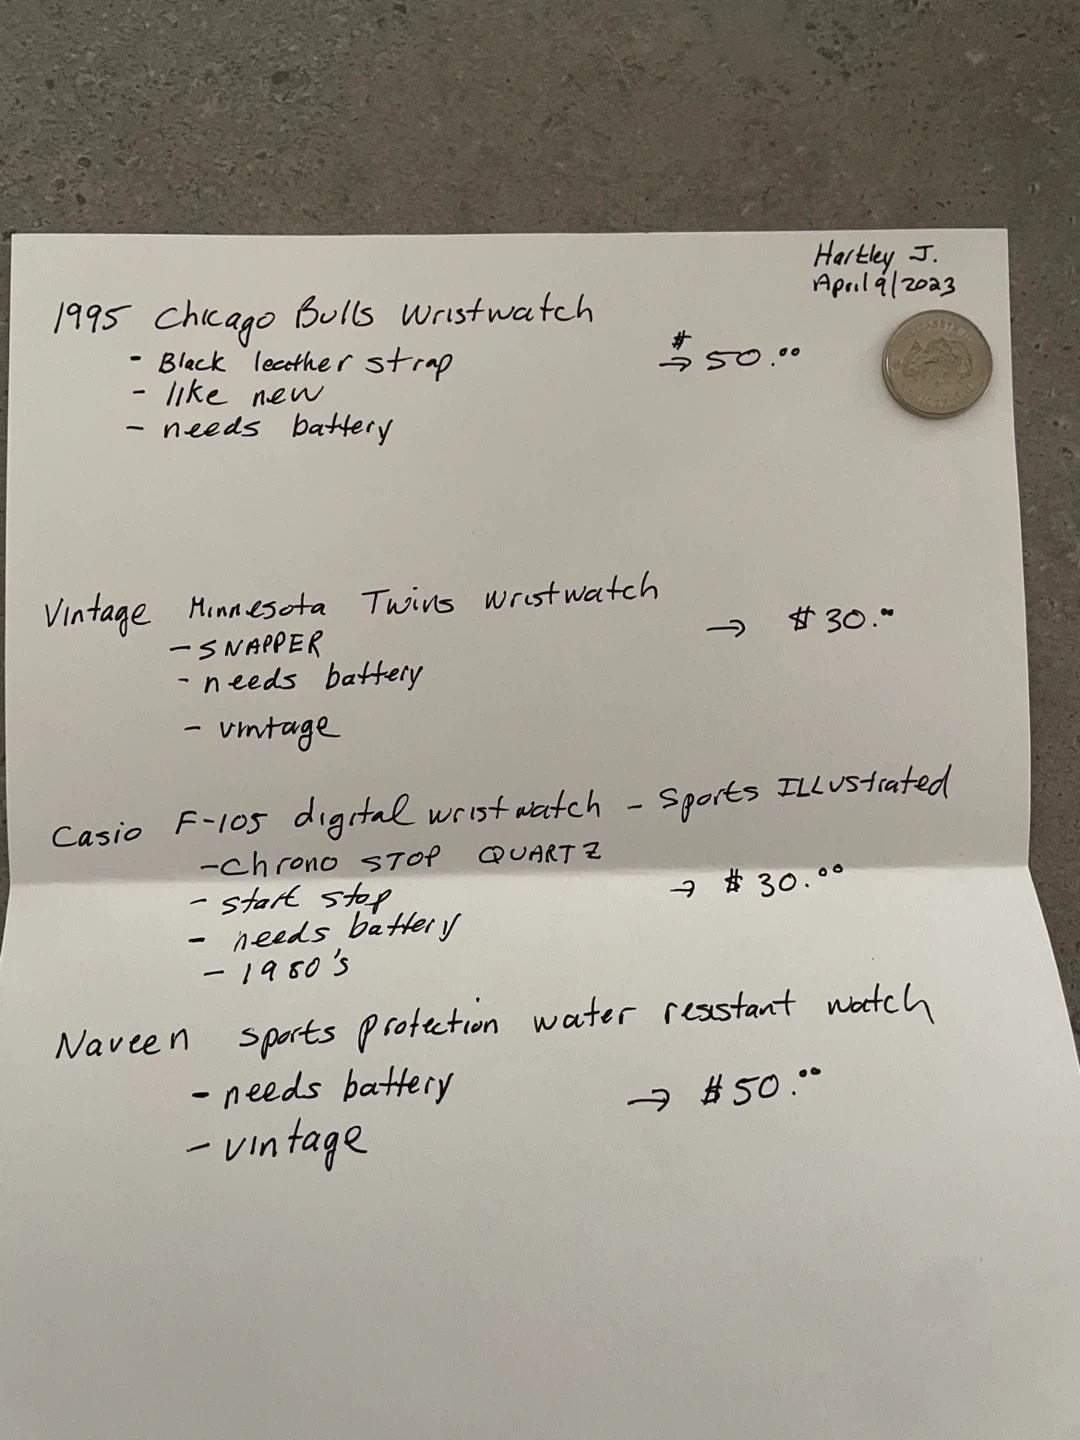 Hartley J.
April 9/2023
1995 Chicago Bulls Wristwatch
- Black leather strap
$ → 50.00
- like new
- needs battery
Vintage Minnesota Twins wristwatch
→ $30.00
- SNAPPER
- needs battery
- vintage
Casio F-105 digital wristwatch - Sports ILLUstrated
- Chrono STOP QUARTZ
→ $30.00
- start stop
- needs battery
- 1980's
Naveen sports protection water resistant watch
- needs battery
→ $50.00
- vintage